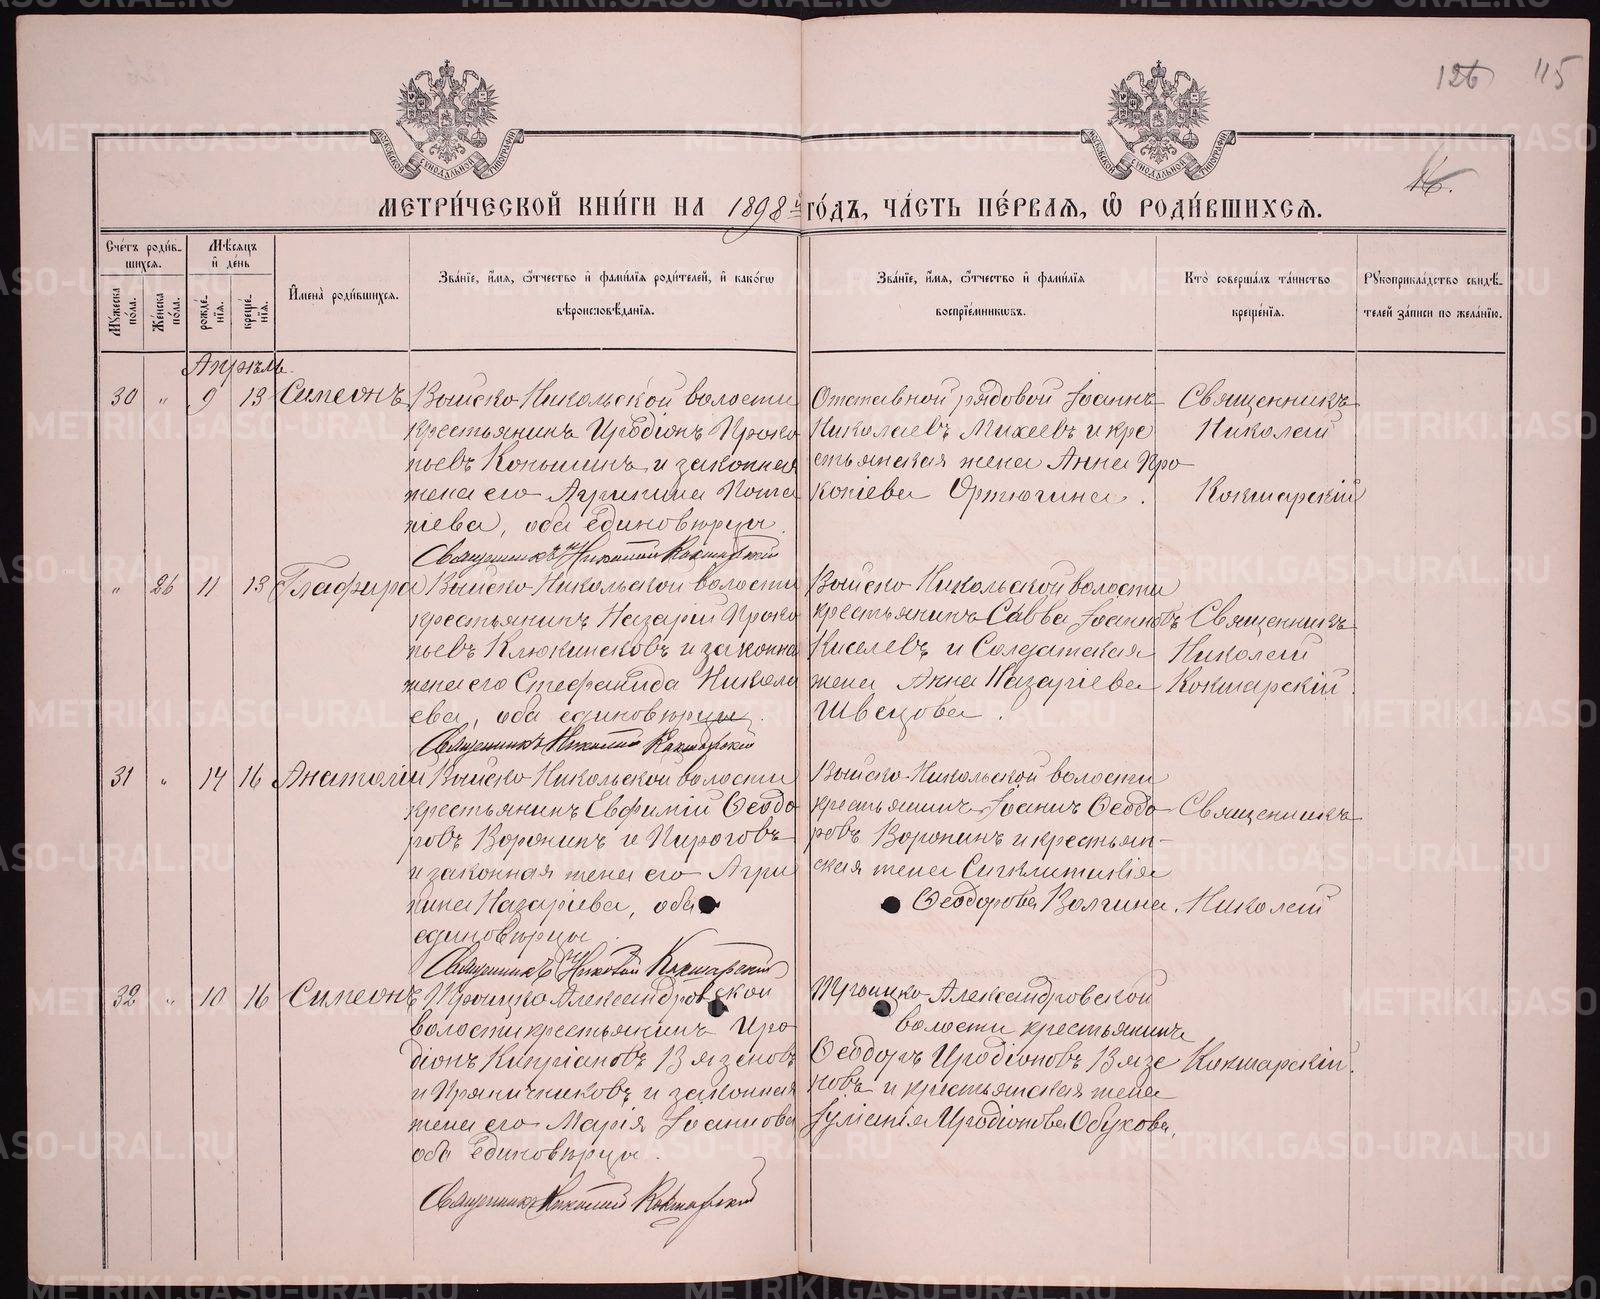 126 115
МОСКОВСКОЙ СѴНОДАЛЬНОЙ ТИПОГРАФІИ
МОСКОВСКОЙ СѴНОДАЛЬНОЙ ТИПОГРАФІИ
МЕТРИ́ЧЕСКОЙ КНИ́ГИ НА 1898й ГО́ДЪ, ЧА́СТЬ ПЕ́РВАѦ, Ѡ РОДИ́ВШИХСѦ.
Сче́тъ роди́в-
шихся.
Мѣ́сяцъ
и де́нь
Му́жеска по́ла.
Же́нска по́ла.
рожде́-
нїя.
креще́-
нїя.
И҆мена̀ роди́вшихся.
Зва́нїе, и҆́мя, ѻ҆́тчество и҆ фами́лїя роди́телей, и҆ како́гѡ
вѣроисповѣ́данїя.
Зва́нїе, и҆́мя, ѻ҆́тчество и҆ фами́лїя
воспрїе́мникѡвъ.
Кто̀ соверша́лъ та́инство
креще́нїя.
Рꙋкоприкла́дство свидѣ́-
телей за́писи по жела́нїю.
Апрѣль.
30 " 9 13 Симеонъ
Выйско-Никольской волости
крестьянинъ Иродіонъ Проко
пьевъ Конышинъ и законная
жена его Агрипина Пота
піева, оба Единовѣрцы.
Священникъ Николай Кокшарскій
Отставной рядовой Іоаннъ
Николаевъ Михеевъ и кре
стьянская жена Анна Про
копіева Ортюгина.
Священникъ
Николай
Кокшарскій
" 26 11 13 Глафира
Выйско-Никольской волости
крестьянинъ Назарій Проко
пьевъ Клюкинсковъ и законна
жена его Стефанида Никола
ева, оба единовѣрцы.
Священникъ Николай Кокшарскій
Выйско-Никольской волости
крестьянинъ Савва Іоанновъ
Киселевъ и Солдатская
жена Анна Назаріева
Швецова.
Священникъ
Николай
Кокшарскій.
31 " 14 16 Анатолій
Выйско-Никольской волости
крестьянинъ Евфимій Ѳеодо
ровъ Воронинъ и Пироговъ
и законная жена его Агри
пина Назаріева, оба
единовѣрцы.
Священникъ Николай Кокшарскій
Выйско-Никольской волости
крестьянинъ Іоаннъ Ѳеодо-
ровъ Воронинъ и крестьян-
ская жена Синклитикія
Ѳеодорова Волгина.
Священникъ
Николай
32 " 10 16 Симеонъ
Троицко-Александровской
волости крестьянинъ Иро-
діонъ Кипріановъ Вязеновъ
и Пряничниковъ и законная
жена его Марія Іоаннова
оба Единовѣрцы.
Священникъ Николай Кокшарскій
Троицко-Александровской
волости крестьянинъ
Ѳеодоръ Иродіоновъ Вязе
новъ и крестьянская жена
Іуліанія Иродіонова Обухова.
Кокшарскій.
METRIKI.GASO-URAL.RU